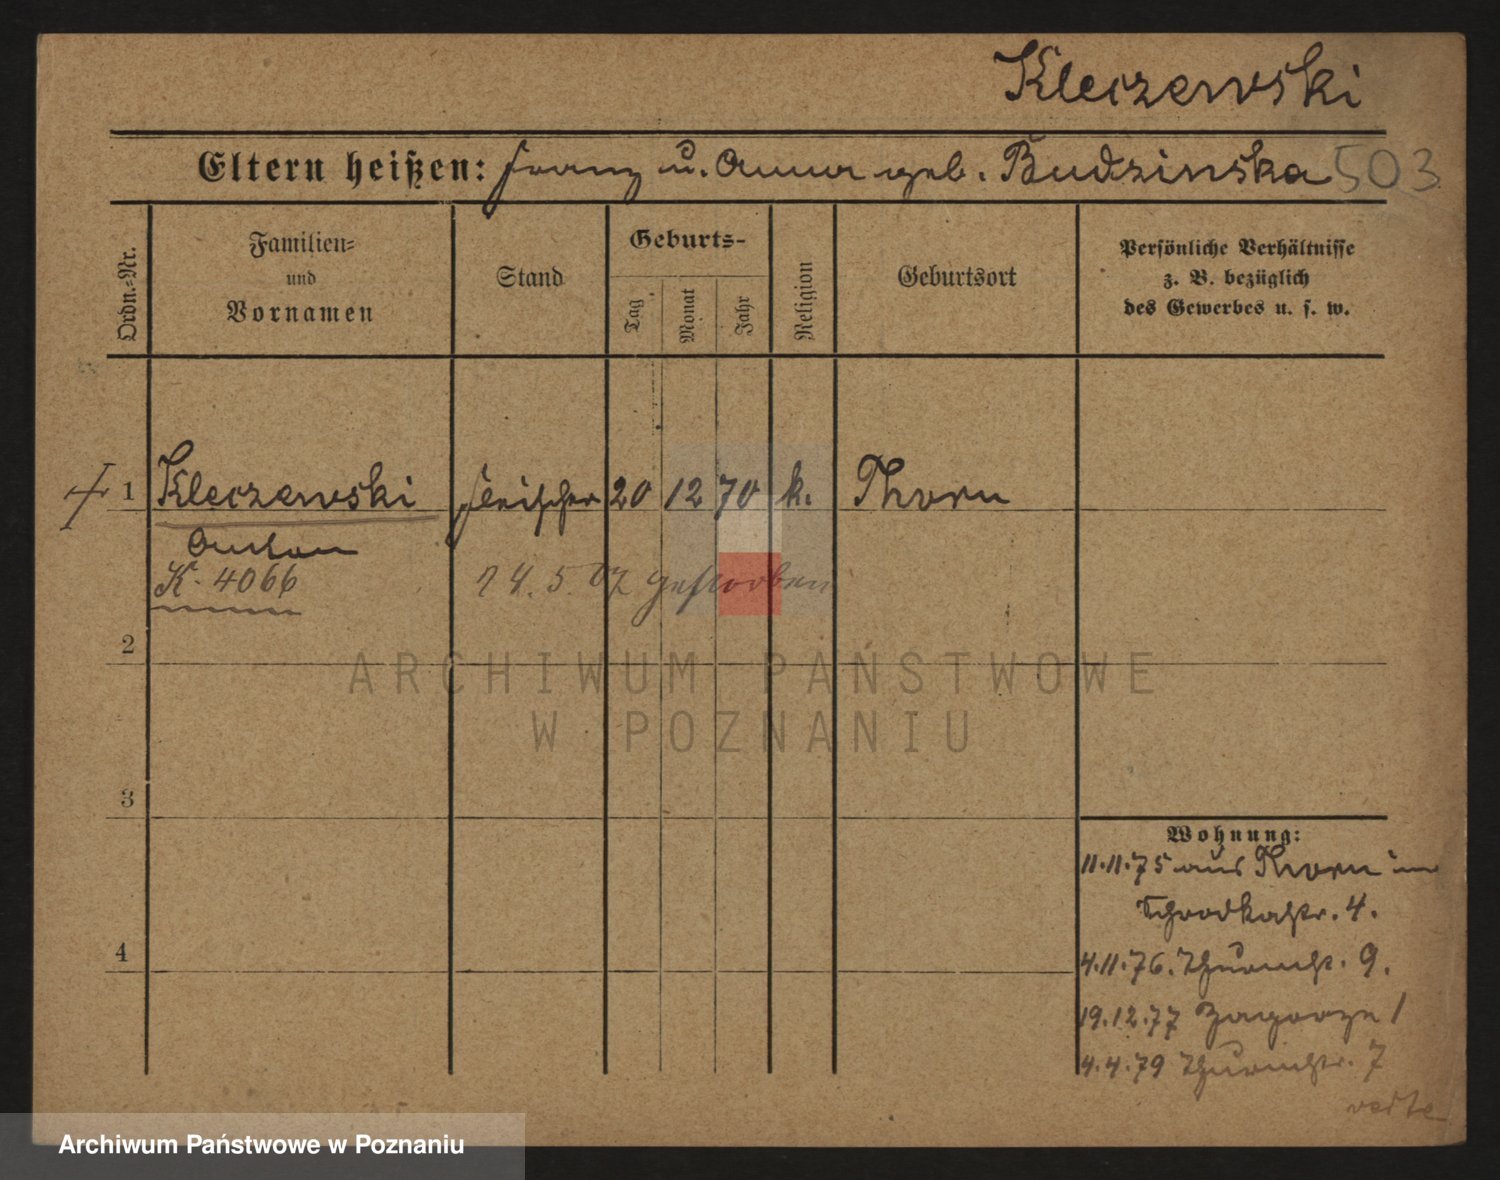 Kleczewski
Eltern heißen: Franz u. Anna geb. Budzinska 503
Ordn.-Nr.
Familien-
und
Vornamen
Stand
Geburts-
Tag
Monat
Jahr
Religion
Geburtsort
Persönliche Verhältnisse
z. B. bezüglich
des Gewerbes u. s. w.
1 Kleczewski Fleischer 20 12 70 k. Thorn
Anton
K. 4066
14. 5. 07 gestorben
2
ARCHIWUM PAŃSTWOWE
W POZNANIU
3
Wohnung:
11.11.75 aus Thorn in
Schrodkastr. 4.
4
4.11.76. Thurmstr. 9.
19.12.77 Zagorze 1
4.4.79 Thurmstr. 7
verte
Archiwum Państwowe w Poznaniu